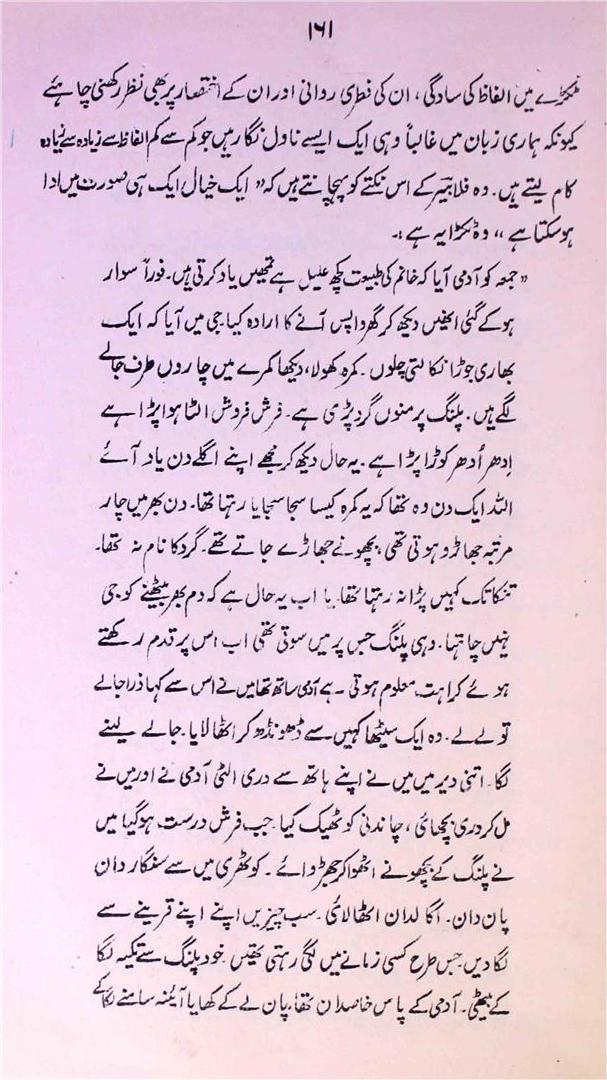 ۱۶۱
ٹکڑے میں الفاظ کی سادگی، ان کی فطری روانی اور ان کے اختصار پر بھی نظر رکھنی چاہئے
کیونکہ ہماری زبان میں غالباً وہی ایک ایسے ناول نگار ہیں جو کم سے کم الفاظ سے زیادہ سے زیادہ
کام لیتے ہیں۔ وہ فلابیر کے اس نکتے کو پہچانتے ہیں کہ ”ایک خیال ایک ہی صورت میں ادا
ہو سکتا ہے“ وہ ٹکڑا یہ ہے:۔
”جمعہ کو آدمی آیا کہ خانم کی طبیعت کچھ علیل ہے تمھیں یاد کرتی ہیں۔ فوراً سوار
ہو کے گئی انھیں دیکھ کر گھر واپس آنے کا ارادہ کیا۔ جی میں آیا کہ ایک
بھاری جوڑا نکالتی چلوں۔ کمرہ کھولا، دیکھا کمرے میں چاروں طرف جالے
لگے ہیں۔ پلنگ پر منوں گرد پڑی ہے۔ فرش فروش الٹا ہوا پڑا ہے
اِدھر اُدھر کوڑا پڑا ہے۔ یہ حال دیکھ کر مجھے اپنے اگلے دن یاد آئے
اللہ ایک دن وہ تھا کہ یہ کمرہ کیسا سجا سجایا رہتا تھا۔ دن بھر میں چار
مرتبہ جھاڑو ہوتی تھی، بچھونے جھاڑے جاتے تھے۔ گرد کا نام نہ تھا۔
تنکا تک کہیں پڑا نہ رہتا تھا۔ یا اب یہ حال ہے کہ دم بھر بیٹھنے کو جی
نہیں چاہتا۔ وہی پلنگ جس پر میں سوتی تھی اب اس پر قدم رکھتے
ہوئے کراہت معلوم ہوتی ہے۔ آدمی ساتھ تھا میں نے اس سے کہا ذرا جالے
تو لے لے۔ وہ ایک سیٹھا کہیں سے ڈھونڈھ کر اٹھا لایا۔ جالے لینے
لگا۔ اتنی دیر میں میں نے اپنے ہاتھ سے دری الٹی آدمی نے اور میں نے
مل کر دری بچھائی، چاندنی کو ٹھیک کیا۔ جب فرش درست ہو گیا میں
نے پلنگ کے بچھونے اٹھوا کر جھڑوائے۔ کوٹھری میں سے سنگاردان
پان دان۔ اگالدان اٹھا لائی۔ سب چیزیں اپنے اپنے قرینے سے
لگا دیں جس طرح کسی زمانے میں لگی رہتی تھیں۔ خود پلنگ سے تکیہ لگا
کے بیٹھی۔ آدمی کے پاس خاصدان تھا۔ پان لے کے کھایا آئینہ سامنے لگا کے